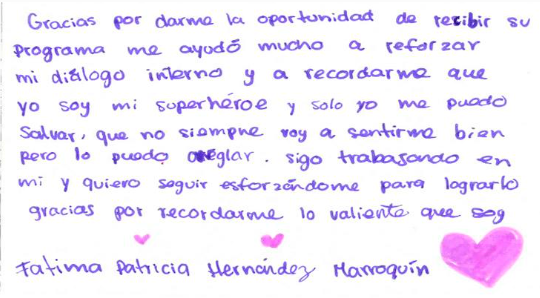 Gracias por darme la oportunidad de recibir su
programa me ayudó mucho a reforzar
mi diálogo interno y a recordarme que
yo soy mi superhéroe y solo yo me puedo
salvar, que no siempre voy a sentirme bien
pero lo puedo arreglar. sigo trabajando en
mi y quiero seguir esforzándome para lograrlo
gracias por recordarme lo valiente que soy
Fatima Patricia Hernández Marroquín